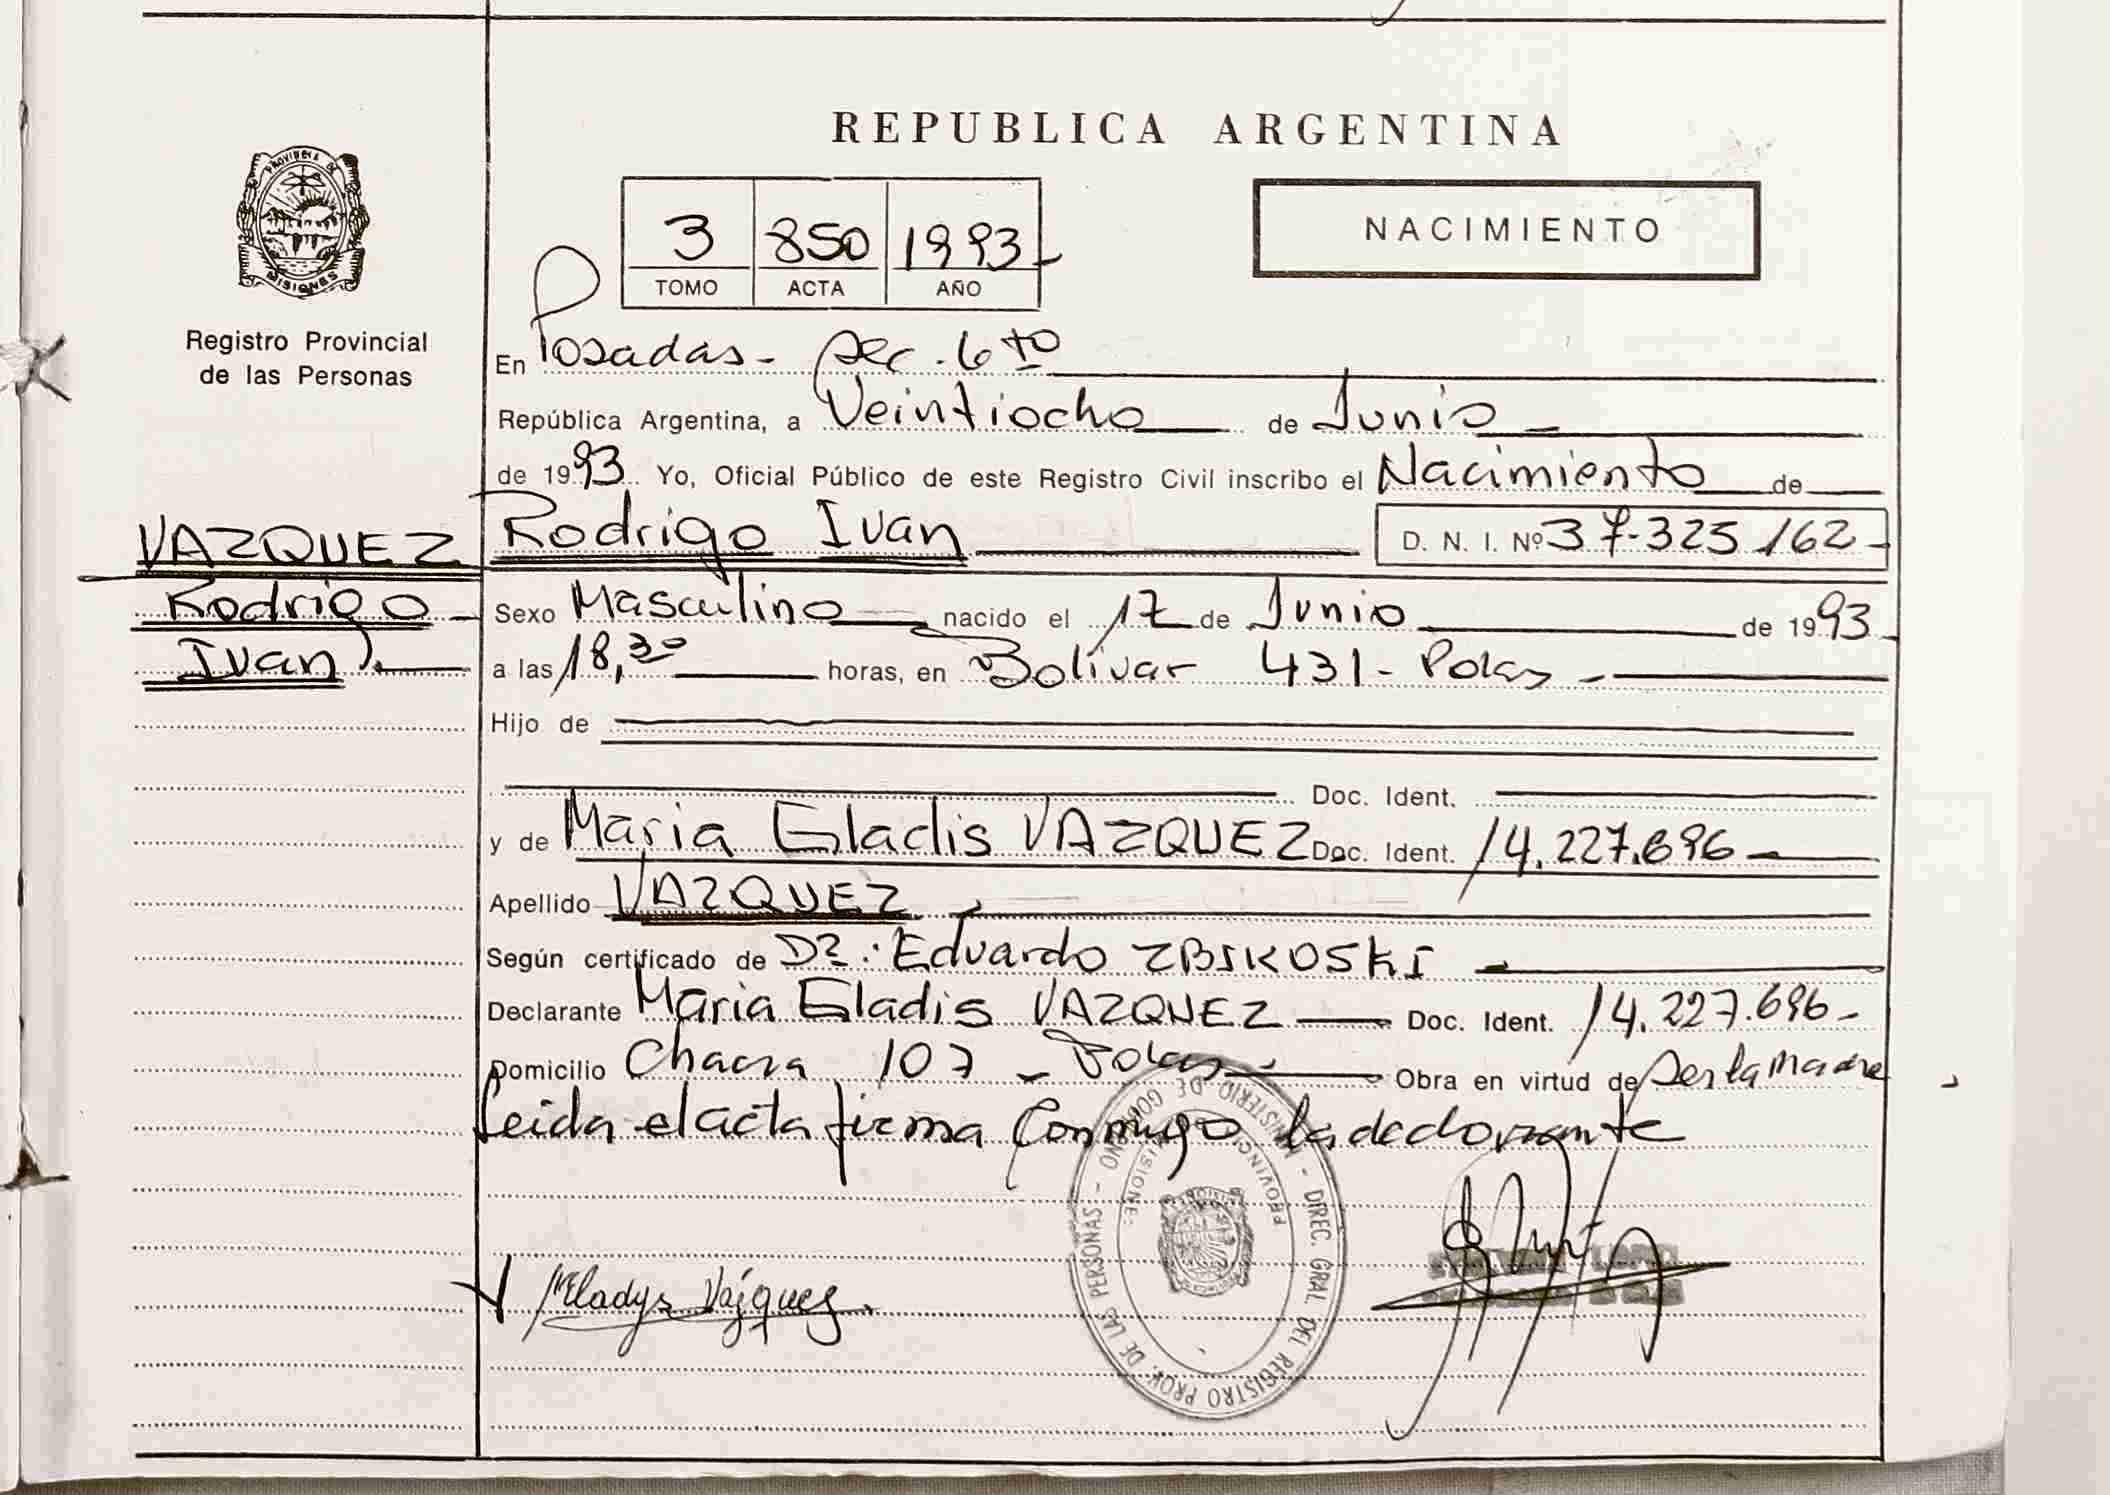 REPUBLICA ARGENTINA
PROVINCIA DE
MISIONES
Registro Provincial
de las Personas
3 850 1993-
TOMO ACTA AÑO
NACIMIENTO
En Posadas - Sec. 6to
República Argentina, a Veintiocho de Junio -
de 1993. Yo, Oficial Público de este Registro Civil inscribo el Nacimiento de
VAZQUEZ
Rodrigo
Ivan.
Rodrigo Ivan D. N. I. Nº 37.325.162-
Sexo Masculino nacido el 17 de Junio de 1993
a las 18,30 horas, en Bolivar 431 - Pdas -
Hijo de
Doc. Ident.
y de Maria Gladis VAZQUEZ Doc. Ident. 14.227.696-
Apellido VAZQUEZ
Según certificado de Dr: Eduardo ZBIKOSKI
Declarante Maria Gladis VAZQUEZ Doc. Ident. 14.227.696-
Domicilio Chacra 107 - Pdas - Obra en virtud de ser la Madre
Leida el acta firma conmigo la declarante
MGladys Vázquez.
MINISTERIO DE GOBIERNO - DIREC. GRAL. DEL REGISTRO PROV. DE LAS PERSONAS -
PROVINCIA MISIONES